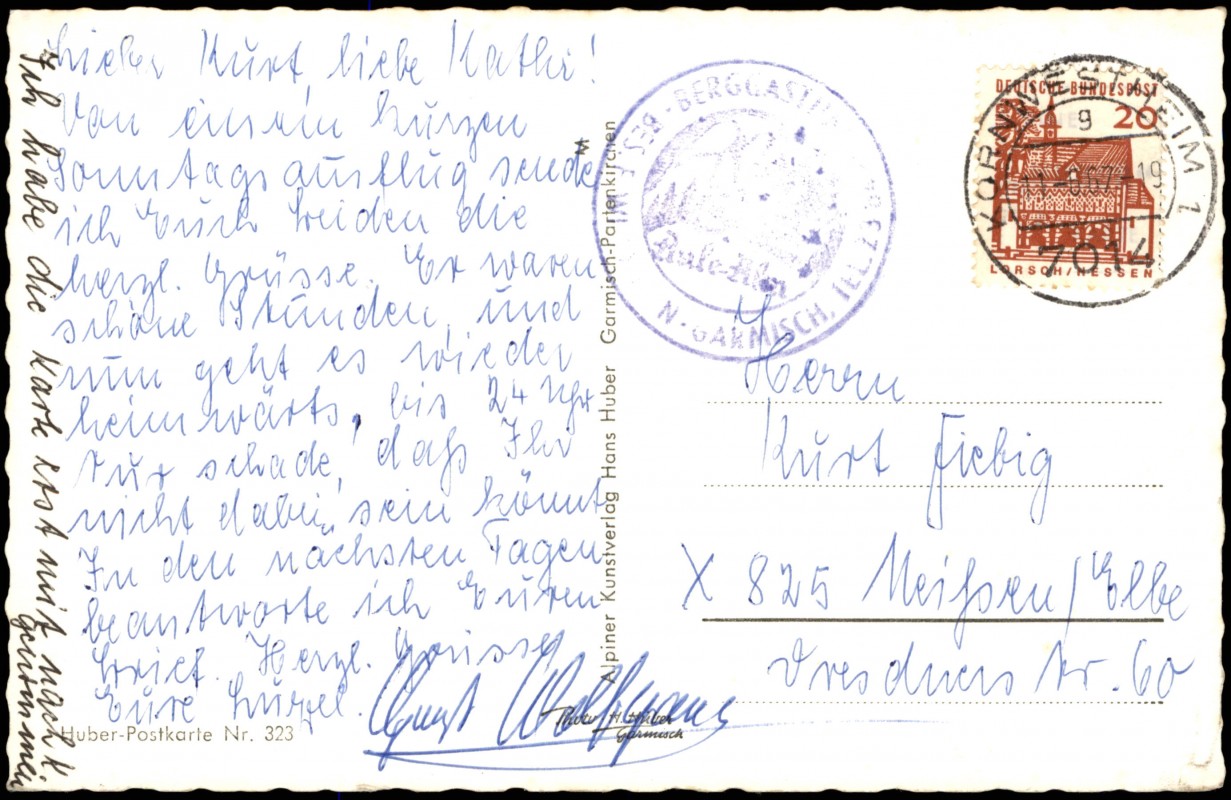 Lieber Kurt, liebe Kathi!
Von einem kurzen
Sonntagsausflug sende
ich Euch beiden die
herzl. Grüsse. Er waren
schöne Stunden, und
nun geht es wieder
heimwärts, bis 24 Uhr
Nur schade, daß Ihr
nicht dabei sein könnt
In den nächsten Tagen
beantworte ich Euren
Brief. Herzl. Grüsse
Eure
Wolfgang
Ich habe die Karte erst mit nach K.
genommen
Huber-Postkarte Nr. 323
Alpiner Kunstverlag Hans Huber Garmisch-Partenkirchen
M
Photo H. Huber
Garmisch
BERGGASTH
N·GARMISCH, TEL.
DEUTSCHE BUNDESPOST
20
LORSCH/HESSEN
KORNWESTHEIM 1
g
7014
Herrn
Kurt Fiebig
X 825 Meißen/Elbe
Dresdnerstr. 60